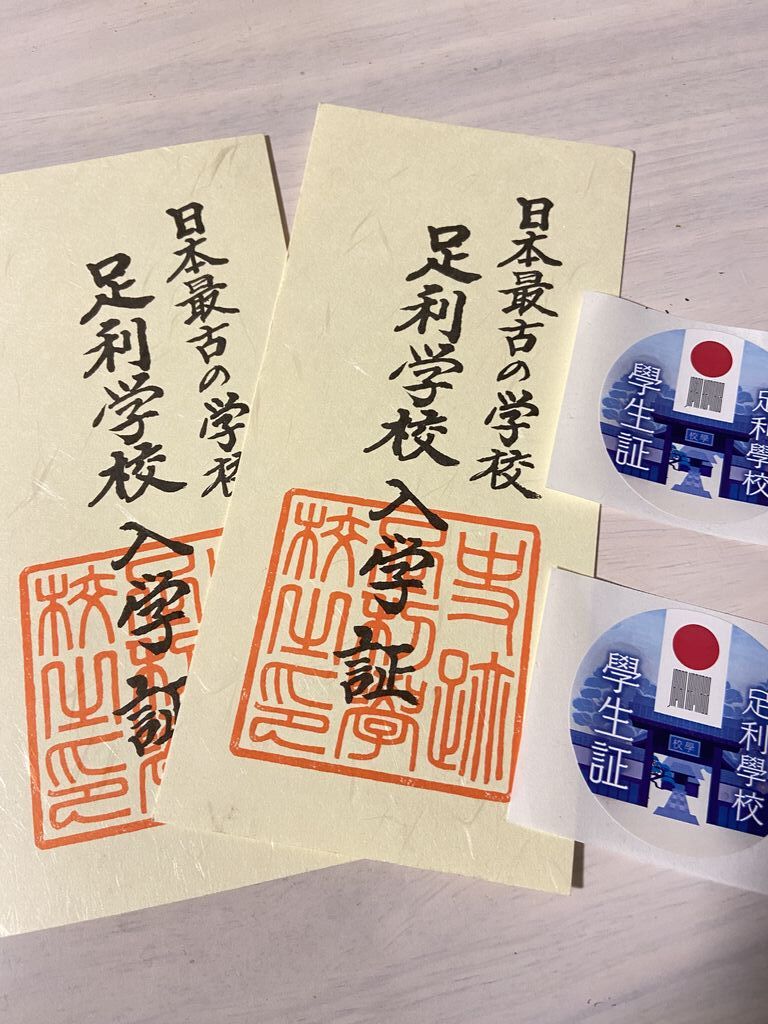 日本最古の学校
足利学校
入学証
史跡
足利学
校之印
日本最古の学校
足利学校
入学証
校之印
足利學校
學生証
學校
足利學校
學生証
學校